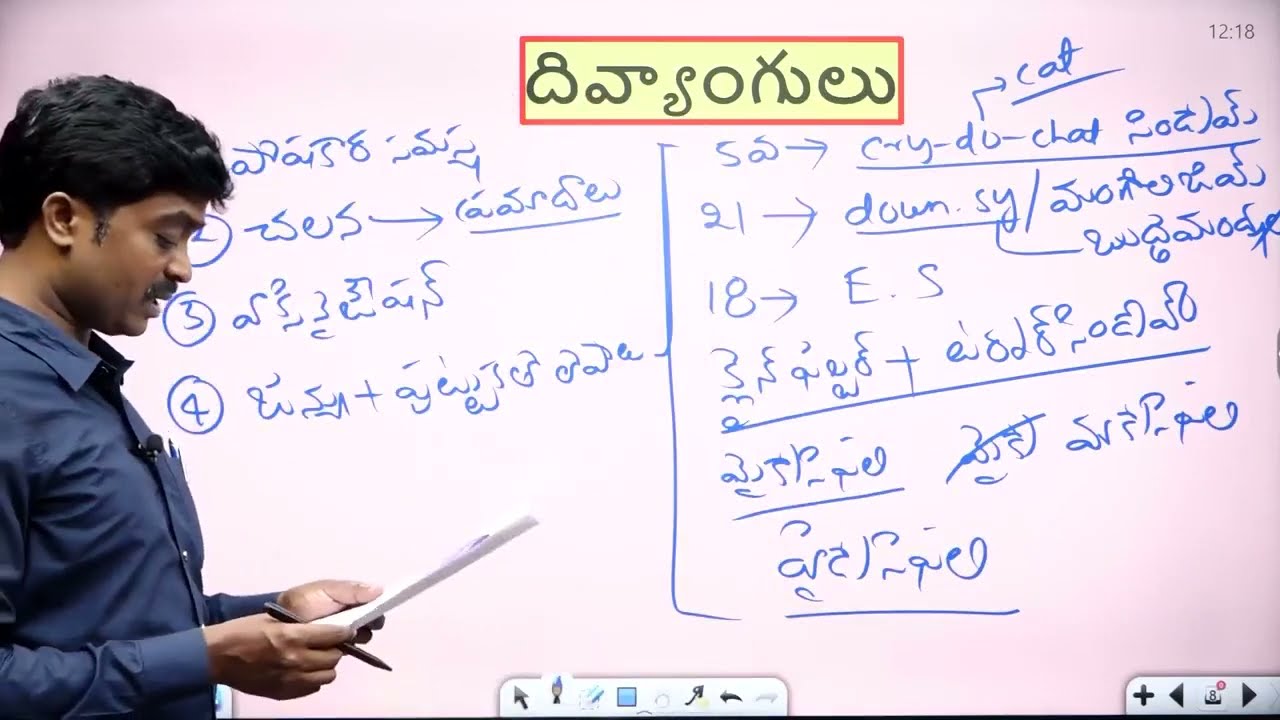 12:18
దివ్యాంగులు
పోషకార సమస్య
2 చలన → ప్రమాదాలు
3 వాక్సినైజేషన్
4 జన్యు + పుట్టుకతో లోపాలు
cat
5వ → cry-du-chat సిండ్రోమ్
21 → down. sy/మంగోలిజిమ్
బుద్ధిమాంద్యత
18 → E. S
క్లైన్ ఫెల్టర్ + టర్నర్ సిండ్రోమ్
మైక్రోసెఫలి మైక్రో మాక్రోసెఫలి
హైడ్రోసెఫలి
8